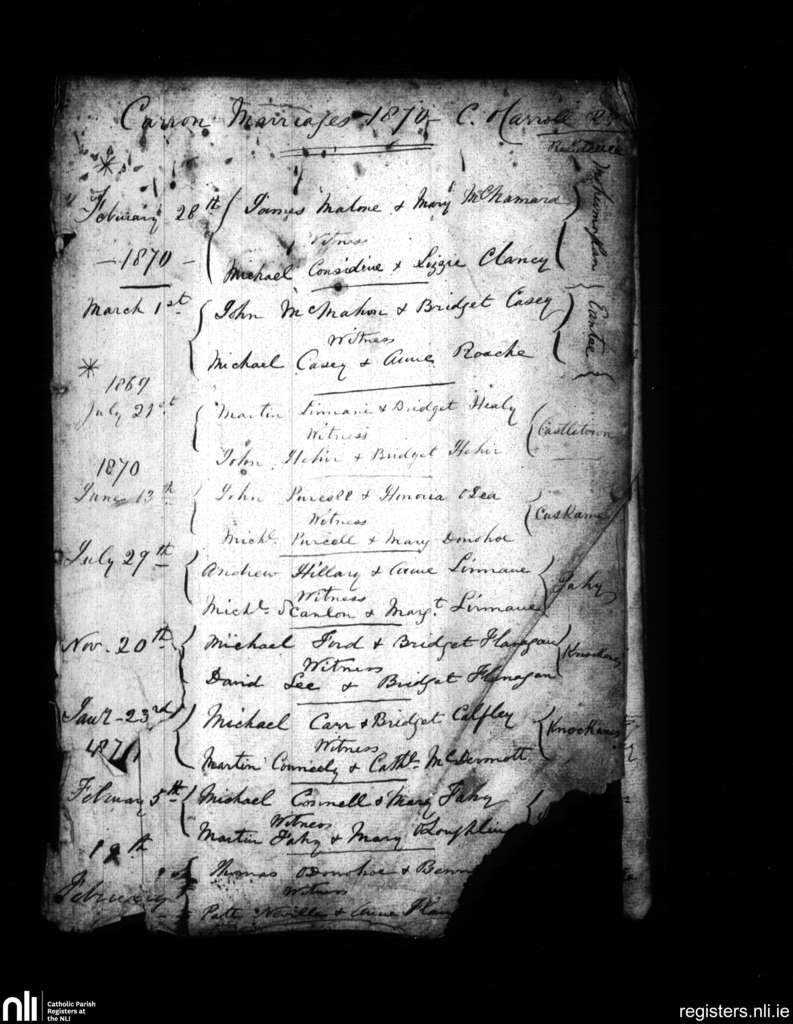 Carron Marriages 1870 C. O'Carroll
Residence
February 28th James Malone & Mary McNamara
Witness
1870 Michael Considine & Lizzie Clancy
March 1st John McMahon & Bridget Casey
Witness
Michael Casey & Anne Roache
1869
July 21st Martin Linnane & Bridget Healy
Witness Castletown
John Hehir & Bridget Hehir
1870
June 13th John Purcell & Honoria OLea
Witness
Michl. Purcell & Mary Donohoe
July 29th Andrew Hillary & Anne Linnane
Witness Fahy
Michl. Scanlon & Margt. Linnane
Nov. 20th Michael Ford & Bridget Flanagan
Witness
David Lee & Bridget Flanagan
Jany 23rd Michael Carr & Bridget Calfley
1871 Witness
Martin Conneely & Cathe McDermott
February 5th Michael Connell & Mary Fahy
Witness
Martin Fahy & Mary O'Loughlin
19th
Thomas ODonohoe &
February Witness
Patt Neville & Anne
nli
Catholic Parish
Registers at
the NLI
registers.nli.ie